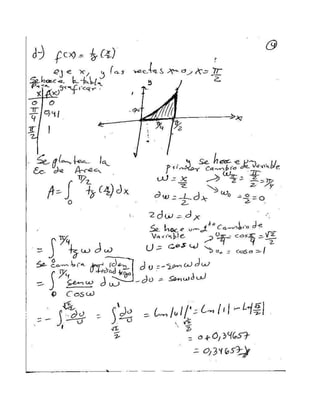 ④
d-) f(x) = tg (x/2)
eje x, y las rectas x=0, x = π/2
Se hace la tabla
para graficar:
x | f(x)
0 | 0
π/4 | 0,41
π/2 | 1
y
0,41
π/4 π/2 x
Se plantea la
Ec de Area
A = ∫₀^{π/2} tg (x/2) dx
y se hace un
primer cambio de variable
w = x/2
w₂ = π/2/2 = π/4
dw = 1/2 dx
w₀ = 0/2 = 0
2dw = dx
Se hace un 2do Cambio de
Variable
= ∫₀^{π/4} tg w dw
U = cos w
cos π/4 = √2/2
u₀ = cos 0 = 1
Se cambia por iden
tidad trigo
du = -sen w dw
= ∫₀^{π/4} sen w / cos w dw
-du = sen w dw
= - ∫₁^{√2/2} du/u = ∫_{√2/2}^{1} du/u = Ln/u/ ]^{1}_{√2/2} = Ln/1/ - Ln/√2/2/
= 0 + 0,34657
= 0,34657